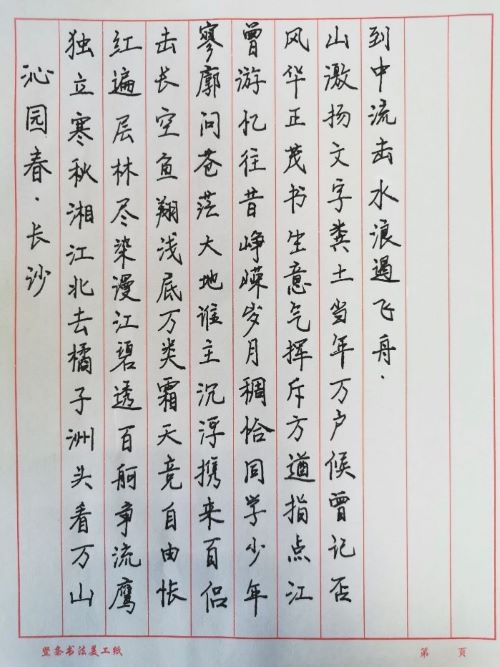 沁园春·长沙
独立寒秋湘江北去橘子洲头看万山
红遍层林尽染漫江碧透百舸争流鹰
击长空鱼翔浅底万类霜天竞自由怅
寥廓问苍茫大地谁主沉浮携来百侣
曾游忆往昔峥嵘岁月稠恰同学少年
风华正茂书生意气挥斥方遒指点江
山激扬文字粪土当年万户候曾记否
到中流击水浪遏飞舟.
书法美工纸
第 页